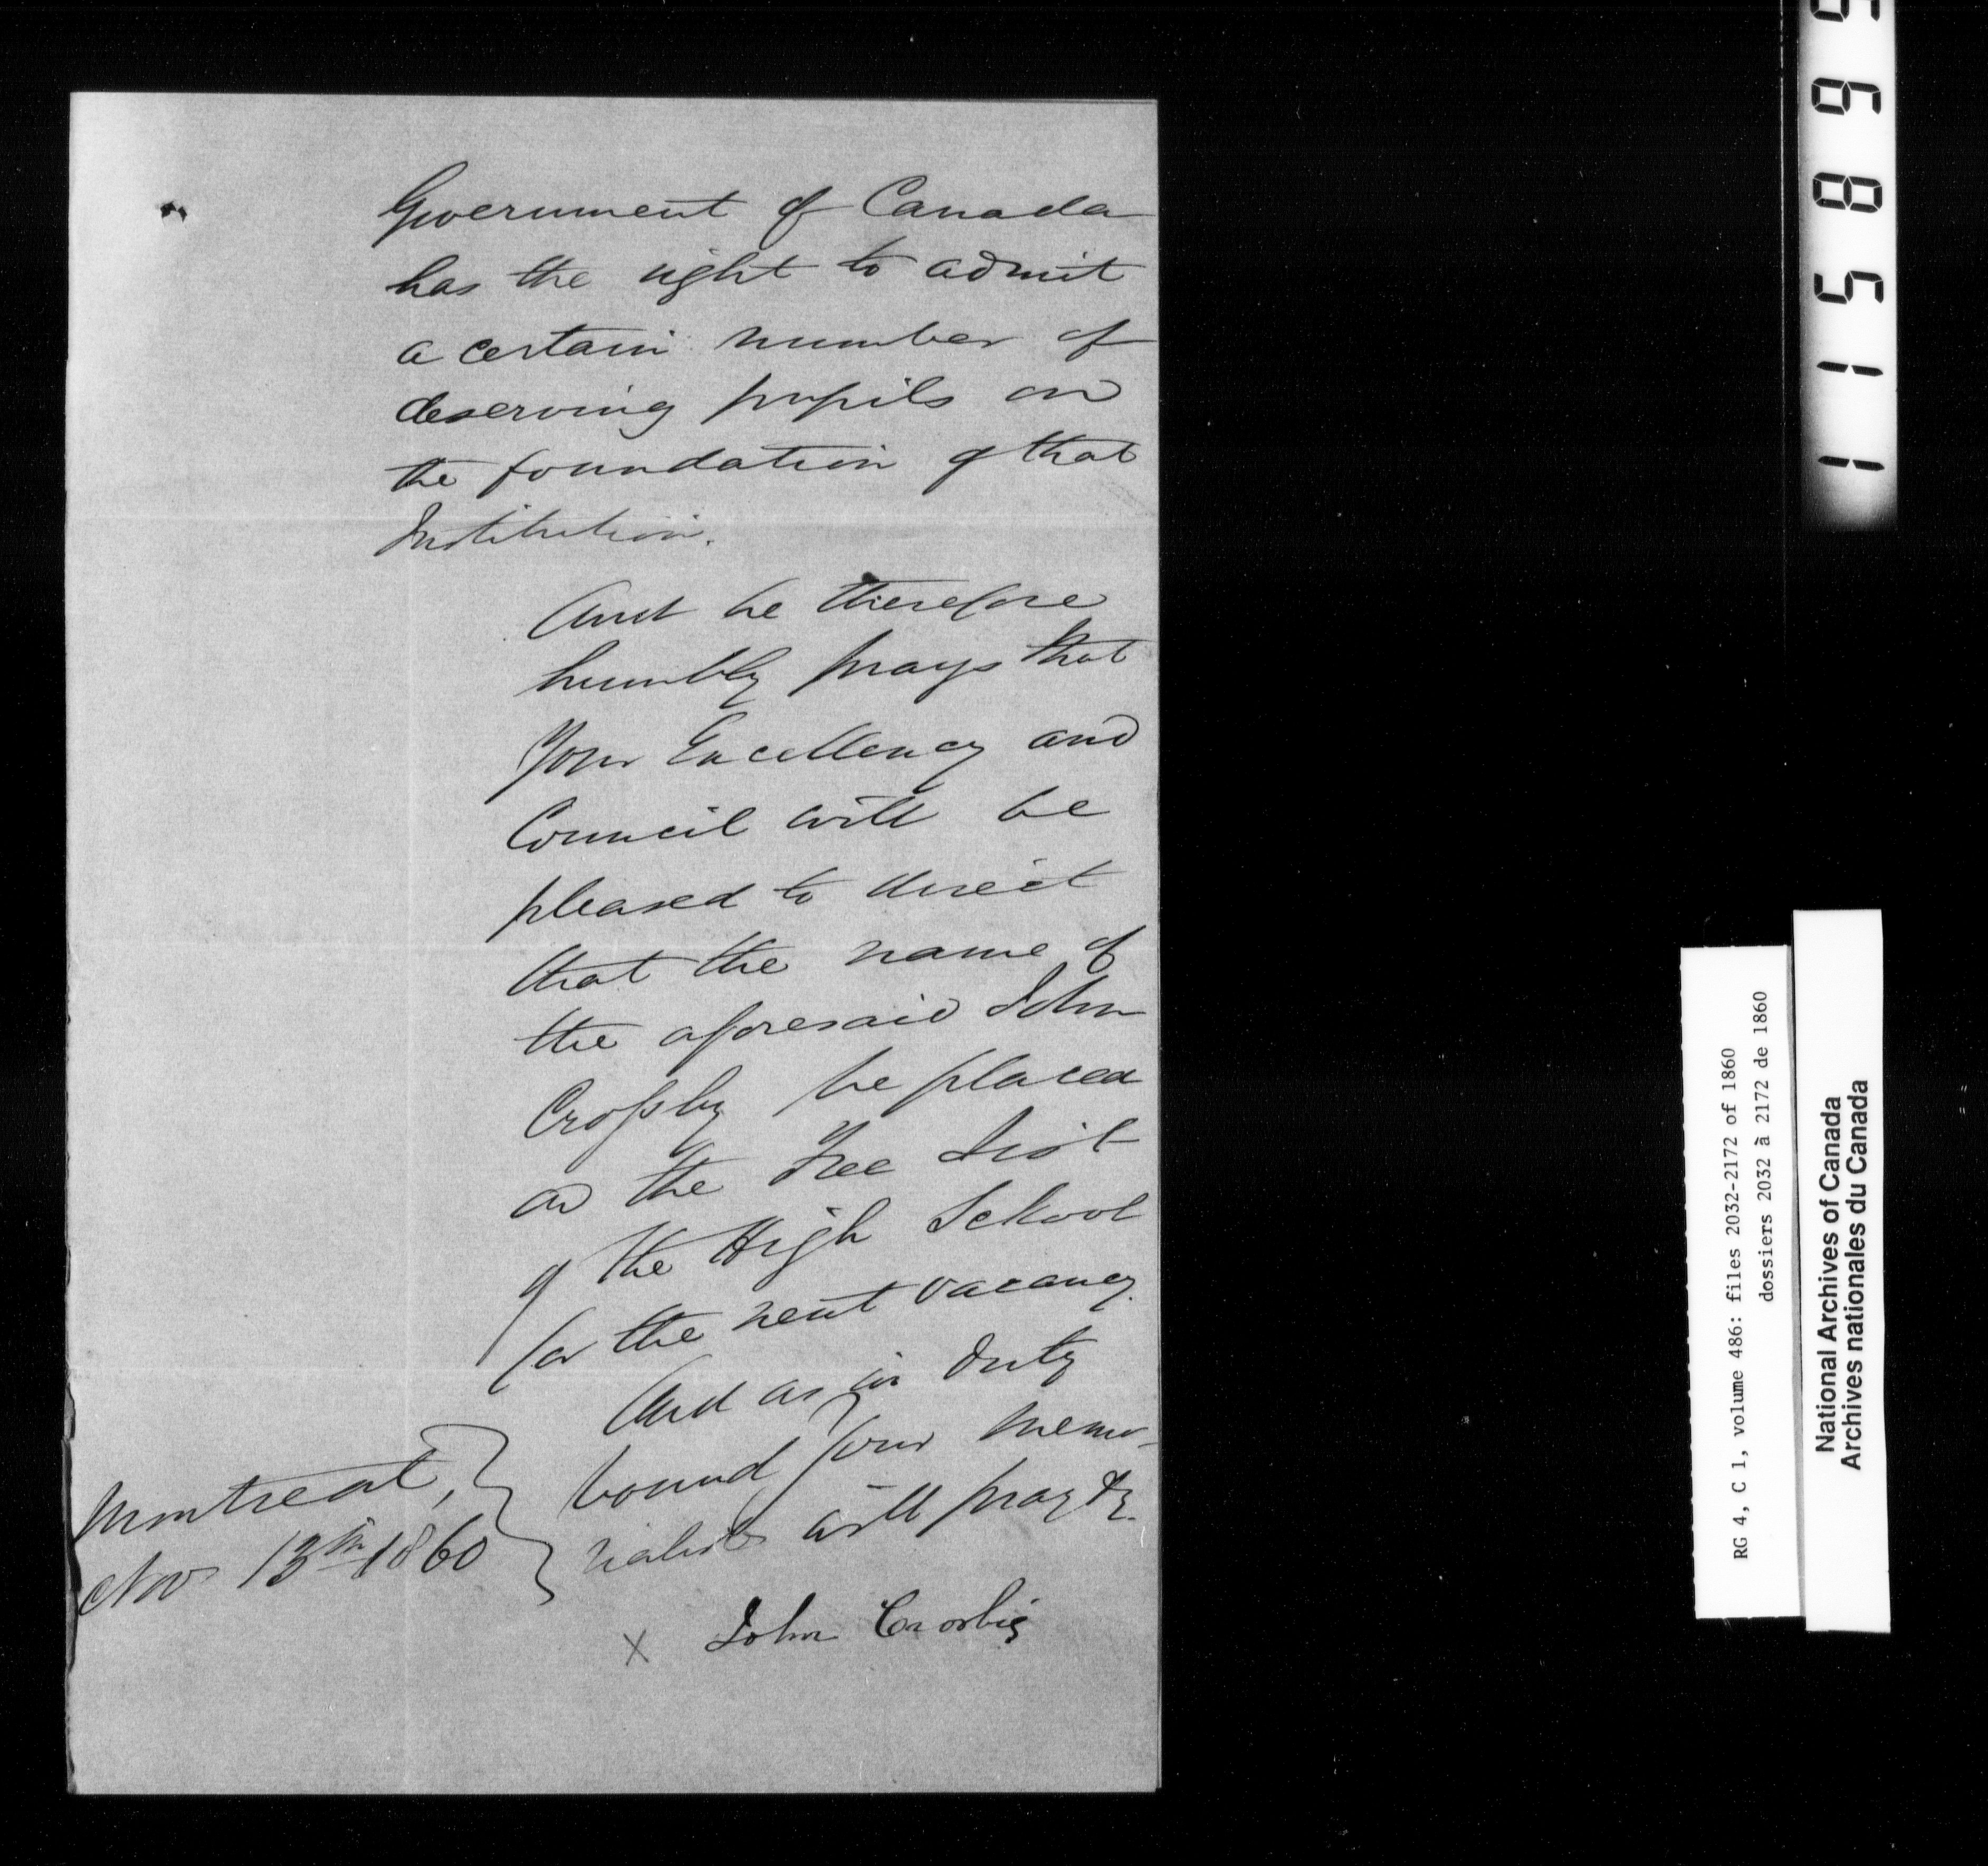 Government of Canada
has the right to admit
a certain number of
deserving pupils on
the foundation of that
Institution.
And he therefore
humbly prays that
Your Excellency and
Council will be
pleased to direct
that the name of
the aforesaid John
Crossby be placed
on the Free List
of the High School
for the next vacancy.
And as in duty
bound your memo-
rialist will pray &c.
Montreal,
Nov 13th 1860
x John Crosbie
115896
RG 4, C 1, volume 486: files 2032-2172 of 1860
dossiers 2032 à 2172 de 1860
National Archives of Canada
Archives nationales du Canada